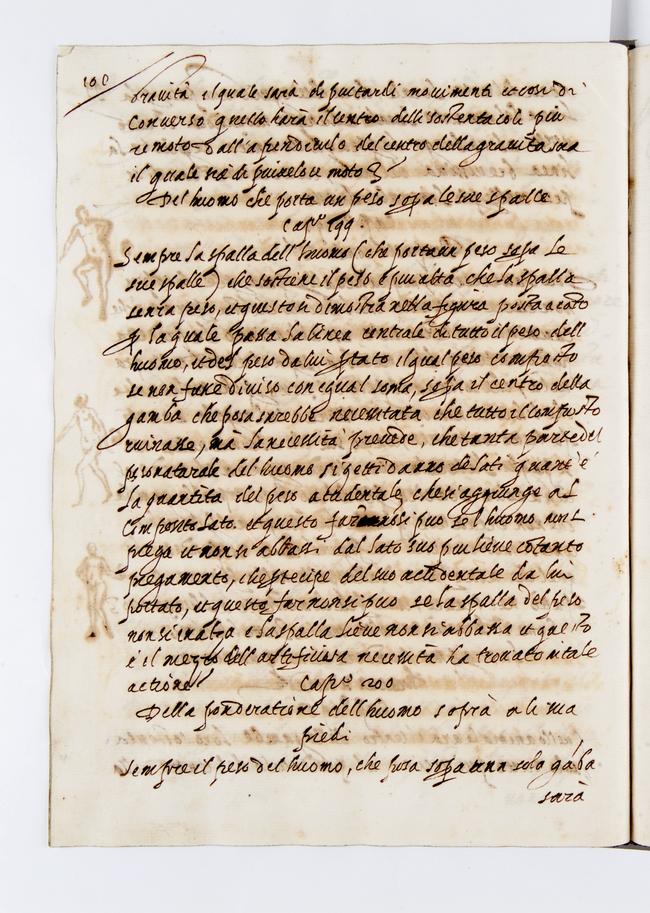 100
gravità il quale sarà de piu tardi movimenti et cosi di
converso quello harà il centro delli sostentacoli piu
remoto dall'apendiculo del centro della gravita sua
il quale sia di più veloce moto
Del huomo che porta un peso sopa le sue spalle
Cap.º 199.
Sempre la spalla dell'huomo (che porta un peso sopa le
sue spalle) che sostiene il peso è piu alta che la spalla
senza peso, et questo si dimostra nella figura posta acanto
p la quale passa la linea centrale di tutto il peso dell
huomo, et del peso da lui portato il qual peso composto
se non fuse diviso con equal soma, sopa il centro della
gamba che posa sarebbe necessitata che tutto il composto
ruinasse, mà la necessità provede, che tanta parte del
peso naturale del huomo si getti da uno de lati quant'è
la quantità del peso accidentale che si aggiunge al
composito lato. et questo far non si puo se l huomo non si
piega et non si abbassi dal lato suo piu lieve cotanto
piegamento, che ptecipe del suo accidentale da lui
portato, et questo far non si puo se la spalla del peso
non si inalza e la spalla lieve non si abbassa et questo
è il mezzo dell'artifitiosa necessità ha trovato in tale
actione
Cap.º 200
Della ponderatione dell huomo sopra a li sua
piedi
Sempre il peso del huomo, che posa sopa una sola gaba
sarà